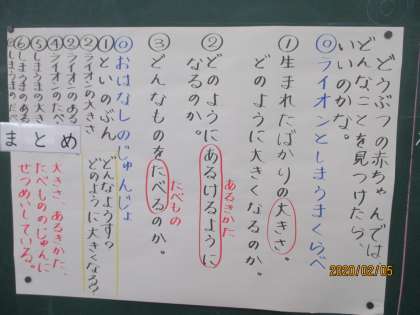 どうぶつの赤ちゃんでは
どんなことを見つけたら、
いいのかな。
◎ライオンとしまうまくらべ
①生まれたばかりの大きさ。
どのように大きくなるのか。
②どのようにあるけるように
なるのか。
あるきかた
③どんなものをたべるのか。
たべもの
◎おはなしのじゅんじょ
①といのぶん
どんなようす?
どのように大きくなる?
②ライオンの大きさ
③ライオンのある
④ライオンのたべ
⑤しまうまの大き
⑥しまうまのある
しまうまのたべ
まとめ
大きさ、あるきかた、
たべもののじゅんに
せつめいしている。
2020/02/05